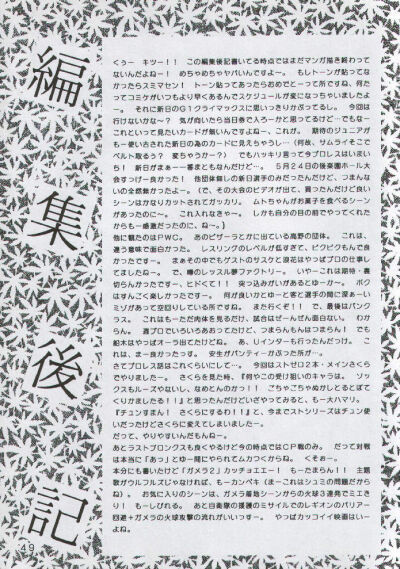 編集後記
くぅー　キツー！！　この編集後記書いてる時点ではまだマンガ描き終わって
ないんだよねー！　めちゃめちゃヤバいんですよー。　もしトーンが貼ってな
かったらスミマセン！　トーン貼ってあったらおめでとーって所ですね，何た
ってコミケがいつもより早くあるんでスケジュールが変になっちゃいましたよ
ー。　それに新日のＧ１クライマックスに思いっきりかぶってるし。　今回は
行けないかな〜？　気が向いたら当日券で入ろーかと思ってるけど…でもなー
これといって見たいカードが無いんですよねー、これが。　期待のジュニアが
もー使い古された新日の為のカードに見えちゃうし…（何故、サムライそこで
ベルト取るう？　変ちゃうかー？）　でもハッキリ言ってラブプロレスはいまい
ち！　新日がまぁー一番まともなんだけど…。　５月２４日の後楽園ホール大
会すっげー良かった！　他団体無しの新日選手のみだったんだけど、つまんな
いの全然無かったよー。（で、その大会のビデオが出て、買ったんだけど良い
シーンはかなりカットされてガッカリ。　ムトちゃんがお菓子を食べるシーン
があったのに〜。　これ入れなきゃ〜。　しかも自分の目の前でやってくれた
からもー感激だったのに、ね〜。）
他に観たのはＰＷＣ。　あのビザーラとかに出ている高野の団体。　これは、
違う意味で面白かった。　レスリングのレベルが低すぎて、ピクピクもんで良
かったです。　まぁその中でもゲストのサスケと浪花はやっぱプロの仕事し
てましたねー。　で、噂のレッスル夢ファクトリー。　いやーこれは期待・裏
切らんかったですー、ヒドくて！！　突っ込みがいがあるとゆーか〜。　ボク
はすんごく楽しかったですー。　何が良いかとゆーと客と選手の間に深ぁーい
ミゾがあって空回りしている所ですね。　また行くぞ！！　で、最後はパンク
ラス。　これはもーただ肉体を見るだけ、試合はぜーんぜん面白ない。　わか
らん。　週プロでいろいろあおってたけど、つまらんもんはつまらん！　でも
船木はやっぱオーラ出てたけどね。　あ、Ｕインターも行ったんだっけ。　こ
れは、まー良かったっす。　安生がパンティーかぶった所が…。
さてプロレス話はこれくらいにして…。　今回はストゼロ２本・メインさくら
でやりましたー。　さくらを見た時、『何やこの受け狙いのキャラは。　ソッ
クスもルーズやないし、なめとんのかっ！！　ごちゃごちゃぬかしとるとぼて
くりかましたるぞ！！』と思ったんだけどいざやってみると、もー大ハマリ。
『チュンすまん！　さくらにするわ！！』と、今までストシリーズはチュン使
いだったけどさくらに変えてしまいましたー。
だって、やりやすいんだもんねー。
あとラストブロンクスも良くやるけど今の時点ではＣＰ戦のみ。　だって対戦
は本当に「あっ」とゆー間にやられてムカつくからね。　くそぉー。
本分にも書いたけど「ガメラ２」カッチョエエー！　もーたまらん！！　主題
歌がウルフルズじゃなければ、もーカンペキ（まーこれはシュミの問題だから
ね）。　お気に入りのシーンは、ガメラ着地シーンからの火球３連発でミエきり
！　もーしびれる。　あと自衛隊の援護のミサイルでのレギオンのバリアー
回避＋ガメラの火球攻撃の流れがいいっすー。　やっぱカッコイイ映画はいー
よねー。
49